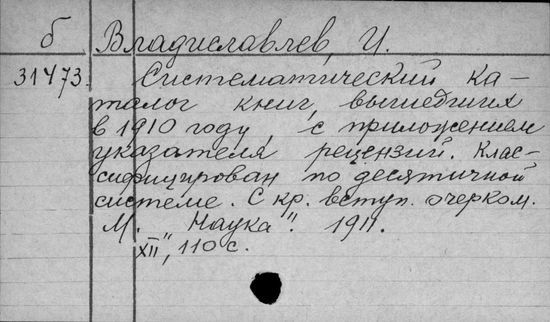 б Владиславлев, И.
31473. Систематический ка-
талог книг, вышедших
в 1910 году, с приложением
указателя рецензий. Клас-
сифицирован по десятичной
системе. С кр. вступ. очерком.
М. "Наука". 1911.
XII, 110 с.